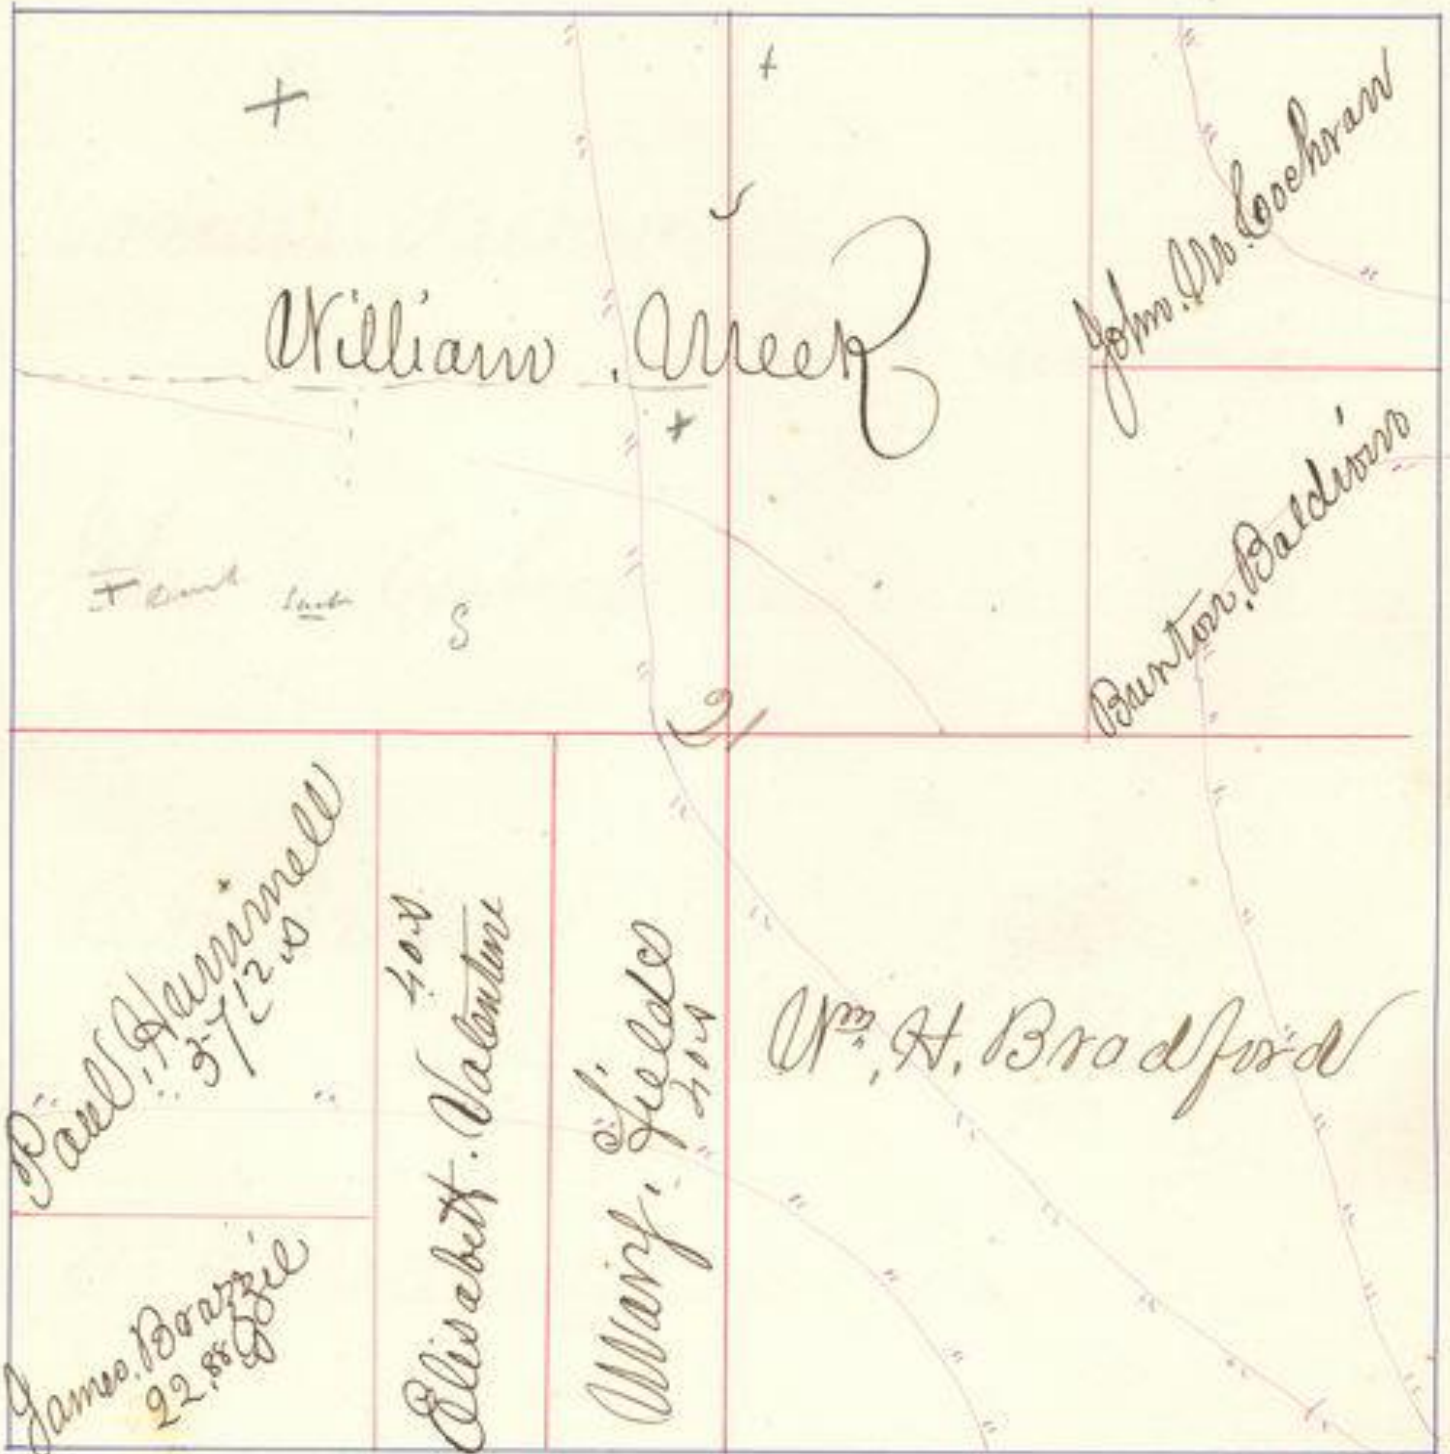 William. Meek
John. M. Cochran
Burton. Baldwin
S
Paul. Hummell
37 1/2 as
James. Brazzil
22,88
40 as
Elisabett. Valentine
Mary. Fields
40 as
Wm. H. Bradford